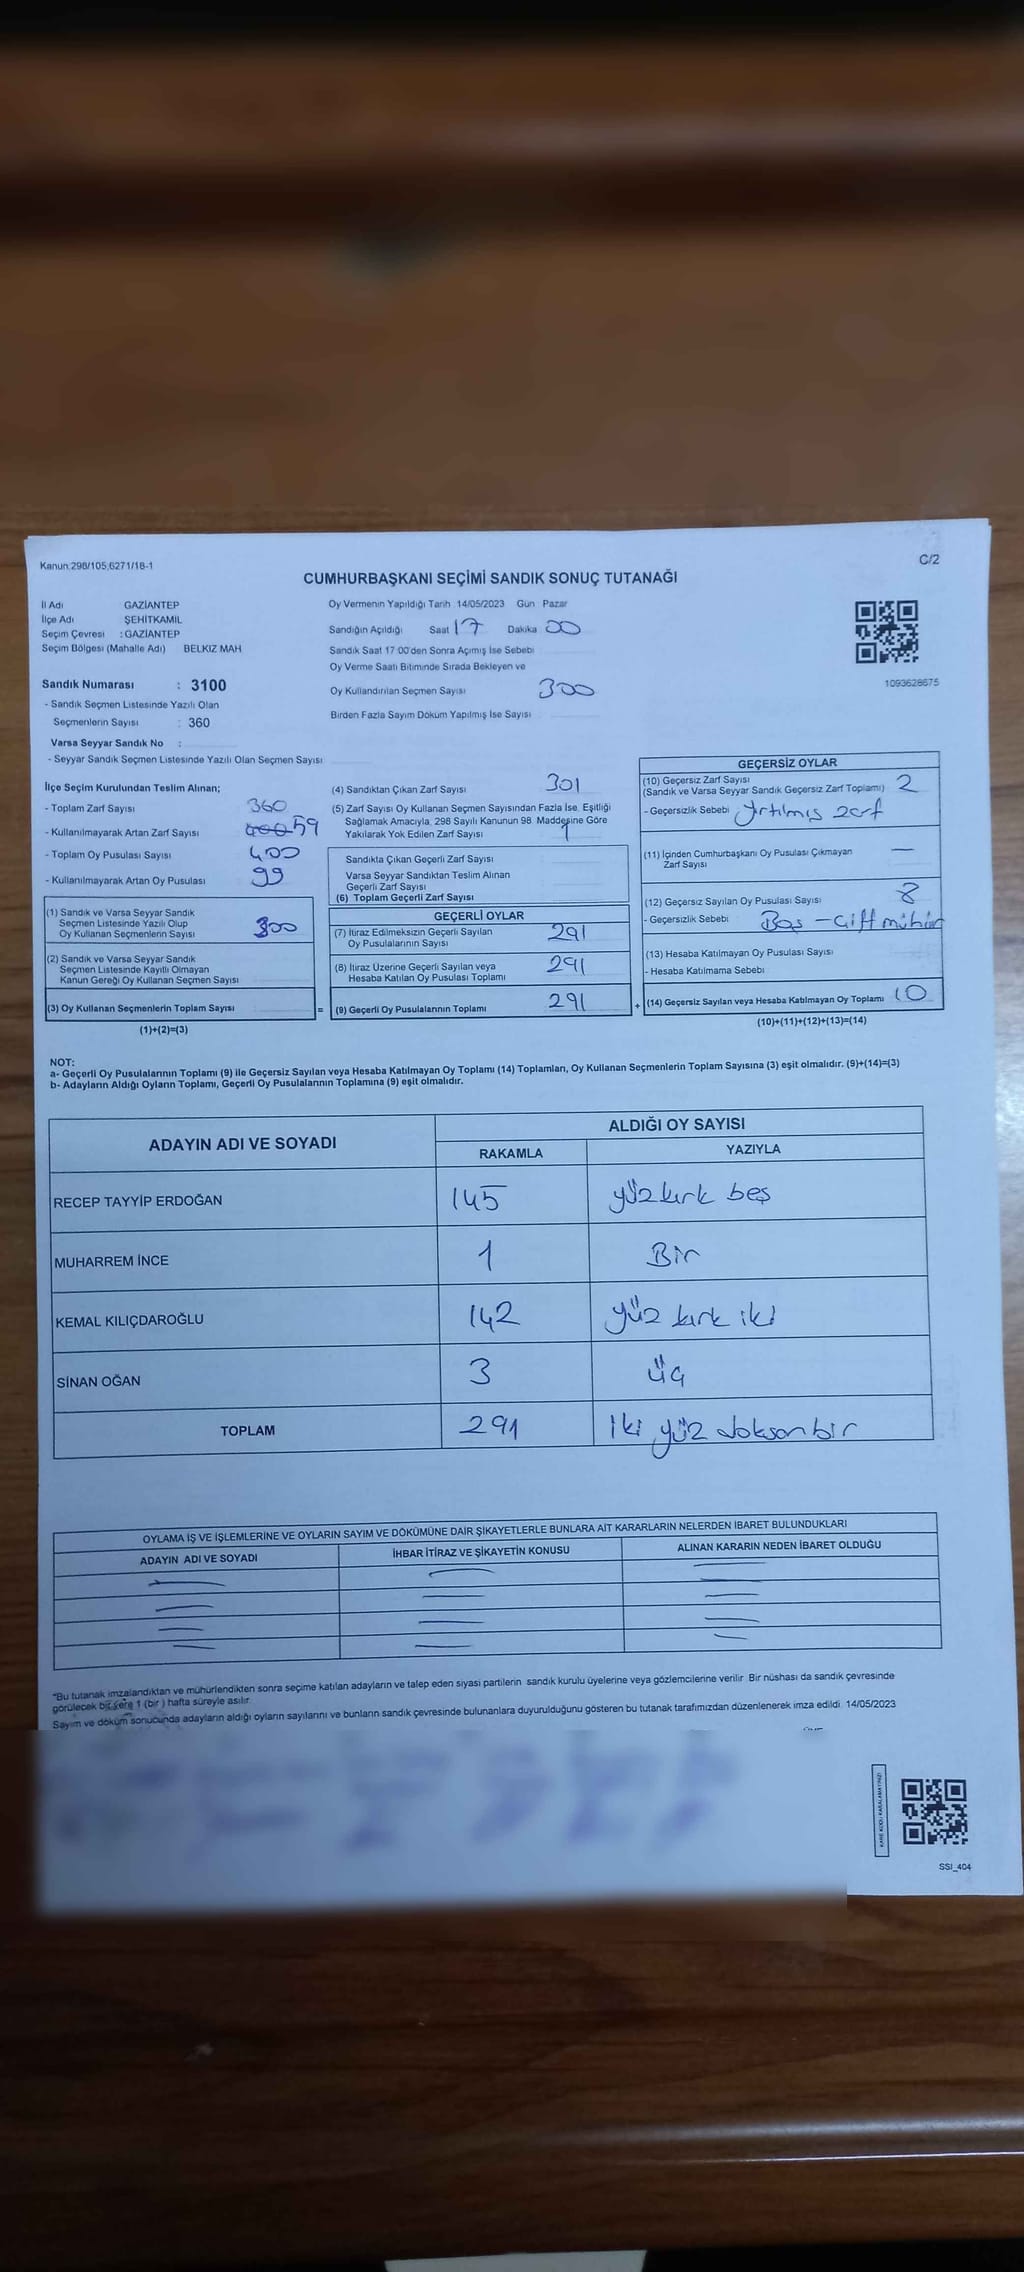 Kanun:298/105;6271/18-1
C/2
CUMHURBAŞKANI SEÇİMİ SANDIK SONUÇ TUTANAĞI
İl Adı GAZİANTEP
İlçe Adı ŞEHİTKAMİL
Seçim Çevresi : GAZİANTEP
Seçim Bölgesi (Mahalle Adı) BELKIZ MAH
Sandık Numarası : 3100
- Sandık Seçmen Listesinde Yazılı Olan
Seçmenlerin Sayısı : 360
Varsa Seyyar Sandık No :
- Seyyar Sandık Seçmen Listesinde Yazılı Olan Seçmen Sayısı
Oy Vermenin Yapıldığı Tarih 14/05/2023 Gün Pazar
Sandığın Açıldığı Saat 17 Dakika 00
Sandık Saat 17 00'den Sonra Açımış İse Sebebi
Oy Verme Saati Bitiminde Sırada Bekleyen ve
Oy Kullandırılan Seçmen Sayısı 300
Birden Fazla Sayım Döküm Yapılmış İse Sayısı
1093628675
İlçe Seçim Kurulundan Teslim Alınan;
- Toplam Zarf Sayısı 360
- Kullanılmayarak Artan Zarf Sayısı 59
- Toplam Oy Pusulası Sayısı 400
- Kullanılmayarak Artan Oy Pusulası 99
(1) Sandık ve Varsa Seyyar Sandık
Seçmen Listesinde Yazılı Olup
Oy Kullanan Seçmenlerin Sayısı 300
(2) Sandık ve Varsa Seyyar Sandık
Seçmen Listesinde Kayıtlı Olmayan
Kanun Gereği Oy Kullanan Seçmen Sayısı
(3) Oy Kullanan Seçmenlerin Toplam Sayısı =
(1)+(2)=(3)
(4) Sandıktan Çıkan Zarf Sayısı 301
(5) Zarf Sayısı Oy Kullanan Seçmen Sayısından Fazla İse, Eşitliği
Sağlamak Amacıyla, 298 Sayılı Kanunun 98. Maddesine Göre
Yakılarak Yok Edilen Zarf Sayısı 1
Sandıkta Çıkan Geçerli Zarf Sayısı
Varsa Seyyar Sandıktan Teslim Alınan
Geçerli Zarf Sayısı
(6) Toplam Geçerli Zarf Sayısı
GEÇERLİ OYLAR
(7) İtiraz Edilmeksizin Geçerli Sayılan
Oy Pusulalarının Sayısı 291
(8) İtiraz Üzerine Geçerli Sayılan veya
Hesaba Katılan Oy Pusulası Toplamı 291
(9) Geçerli Oy Pusulalarının Toplamı 291 +
GEÇERSİZ OYLAR
(10) Geçersiz Zarf Sayısı
(Sandık ve Varsa Seyyar Sandık Geçersiz Zarf Toplamı) 2
- Geçersizlik Sebebi Yırtılmış zarf
(11) İçinden Cumhurbaşkanı Oy Pusulası Çıkmayan
Zarf Sayısı —
(12) Geçersiz Sayılan Oy Pusulası Sayısı 8
- Geçersizlik Sebebi Boş - Çift mühür
(13) Hesaba Katılmayan Oy Pusulası Sayısı
- Hesaba Katılmama Sebebi
(14) Geçersiz Sayılan veya Hesaba Katılmayan Oy Toplamı 10
(10)+(11)+(12)+(13)=(14)
NOT:
a- Geçerli Oy Pusulalarının Toplamı (9) ile Geçersiz Sayılan veya Hesaba Katılmayan Oy Toplamı (14) Toplamları, Oy Kullanan Seçmenlerin Toplam Sayısına (3) eşit olmalıdır. (9)+(14)=(3)
b- Adayların Aldığı Oyların Toplamı, Geçerli Oy Pusulalarının Toplamına (9) eşit olmalıdır.
ADAYIN ADI VE SOYADI ALDIĞI OY SAYISI
RAKAMLA YAZIYLA
RECEP TAYYİP ERDOĞAN 145 yüz kırk beş
MUHARREM İNCE 1 Bir
KEMAL KILIÇDAROĞLU 142 yüz kırk iki
SİNAN OĞAN 3 üç
TOPLAM 291 İki yüz doksan bir
OYLAMA İŞ VE İŞLEMLERİNE VE OYLARIN SAYIM VE DÖKÜMÜNE DAİR ŞİKAYETLERLE BUNLARA AİT KARARLARIN NELERDEN İBARET BULUNDUKLARI
ADAYIN ADI VE SOYADI İHBAR İTİRAZ VE ŞİKAYETİN KONUSU ALINAN KARARIN NEDEN İBARET OLDUĞU
"Bu tutanak imzalandıktan ve mühürlendikten sonra seçime katılan adayların ve talep eden siyasi partilerin sandık kurulu üyelerine veya gözlemcilerine verilir Bir nüshası da sandık çevresinde
görülecek bir yere 1 (bir ) hafta süreyle asılır.
Sayım ve döküm sonucunda adayların aldığı oyların sayılarını ve bunların sandık çevresinde bulunanlara duyurulduğunu gösteren bu tutanak tarafımızdan düzenlenerek imza edildi 14/05/2023
KARE KODU KARALAMAYINIZ!
SSI_404